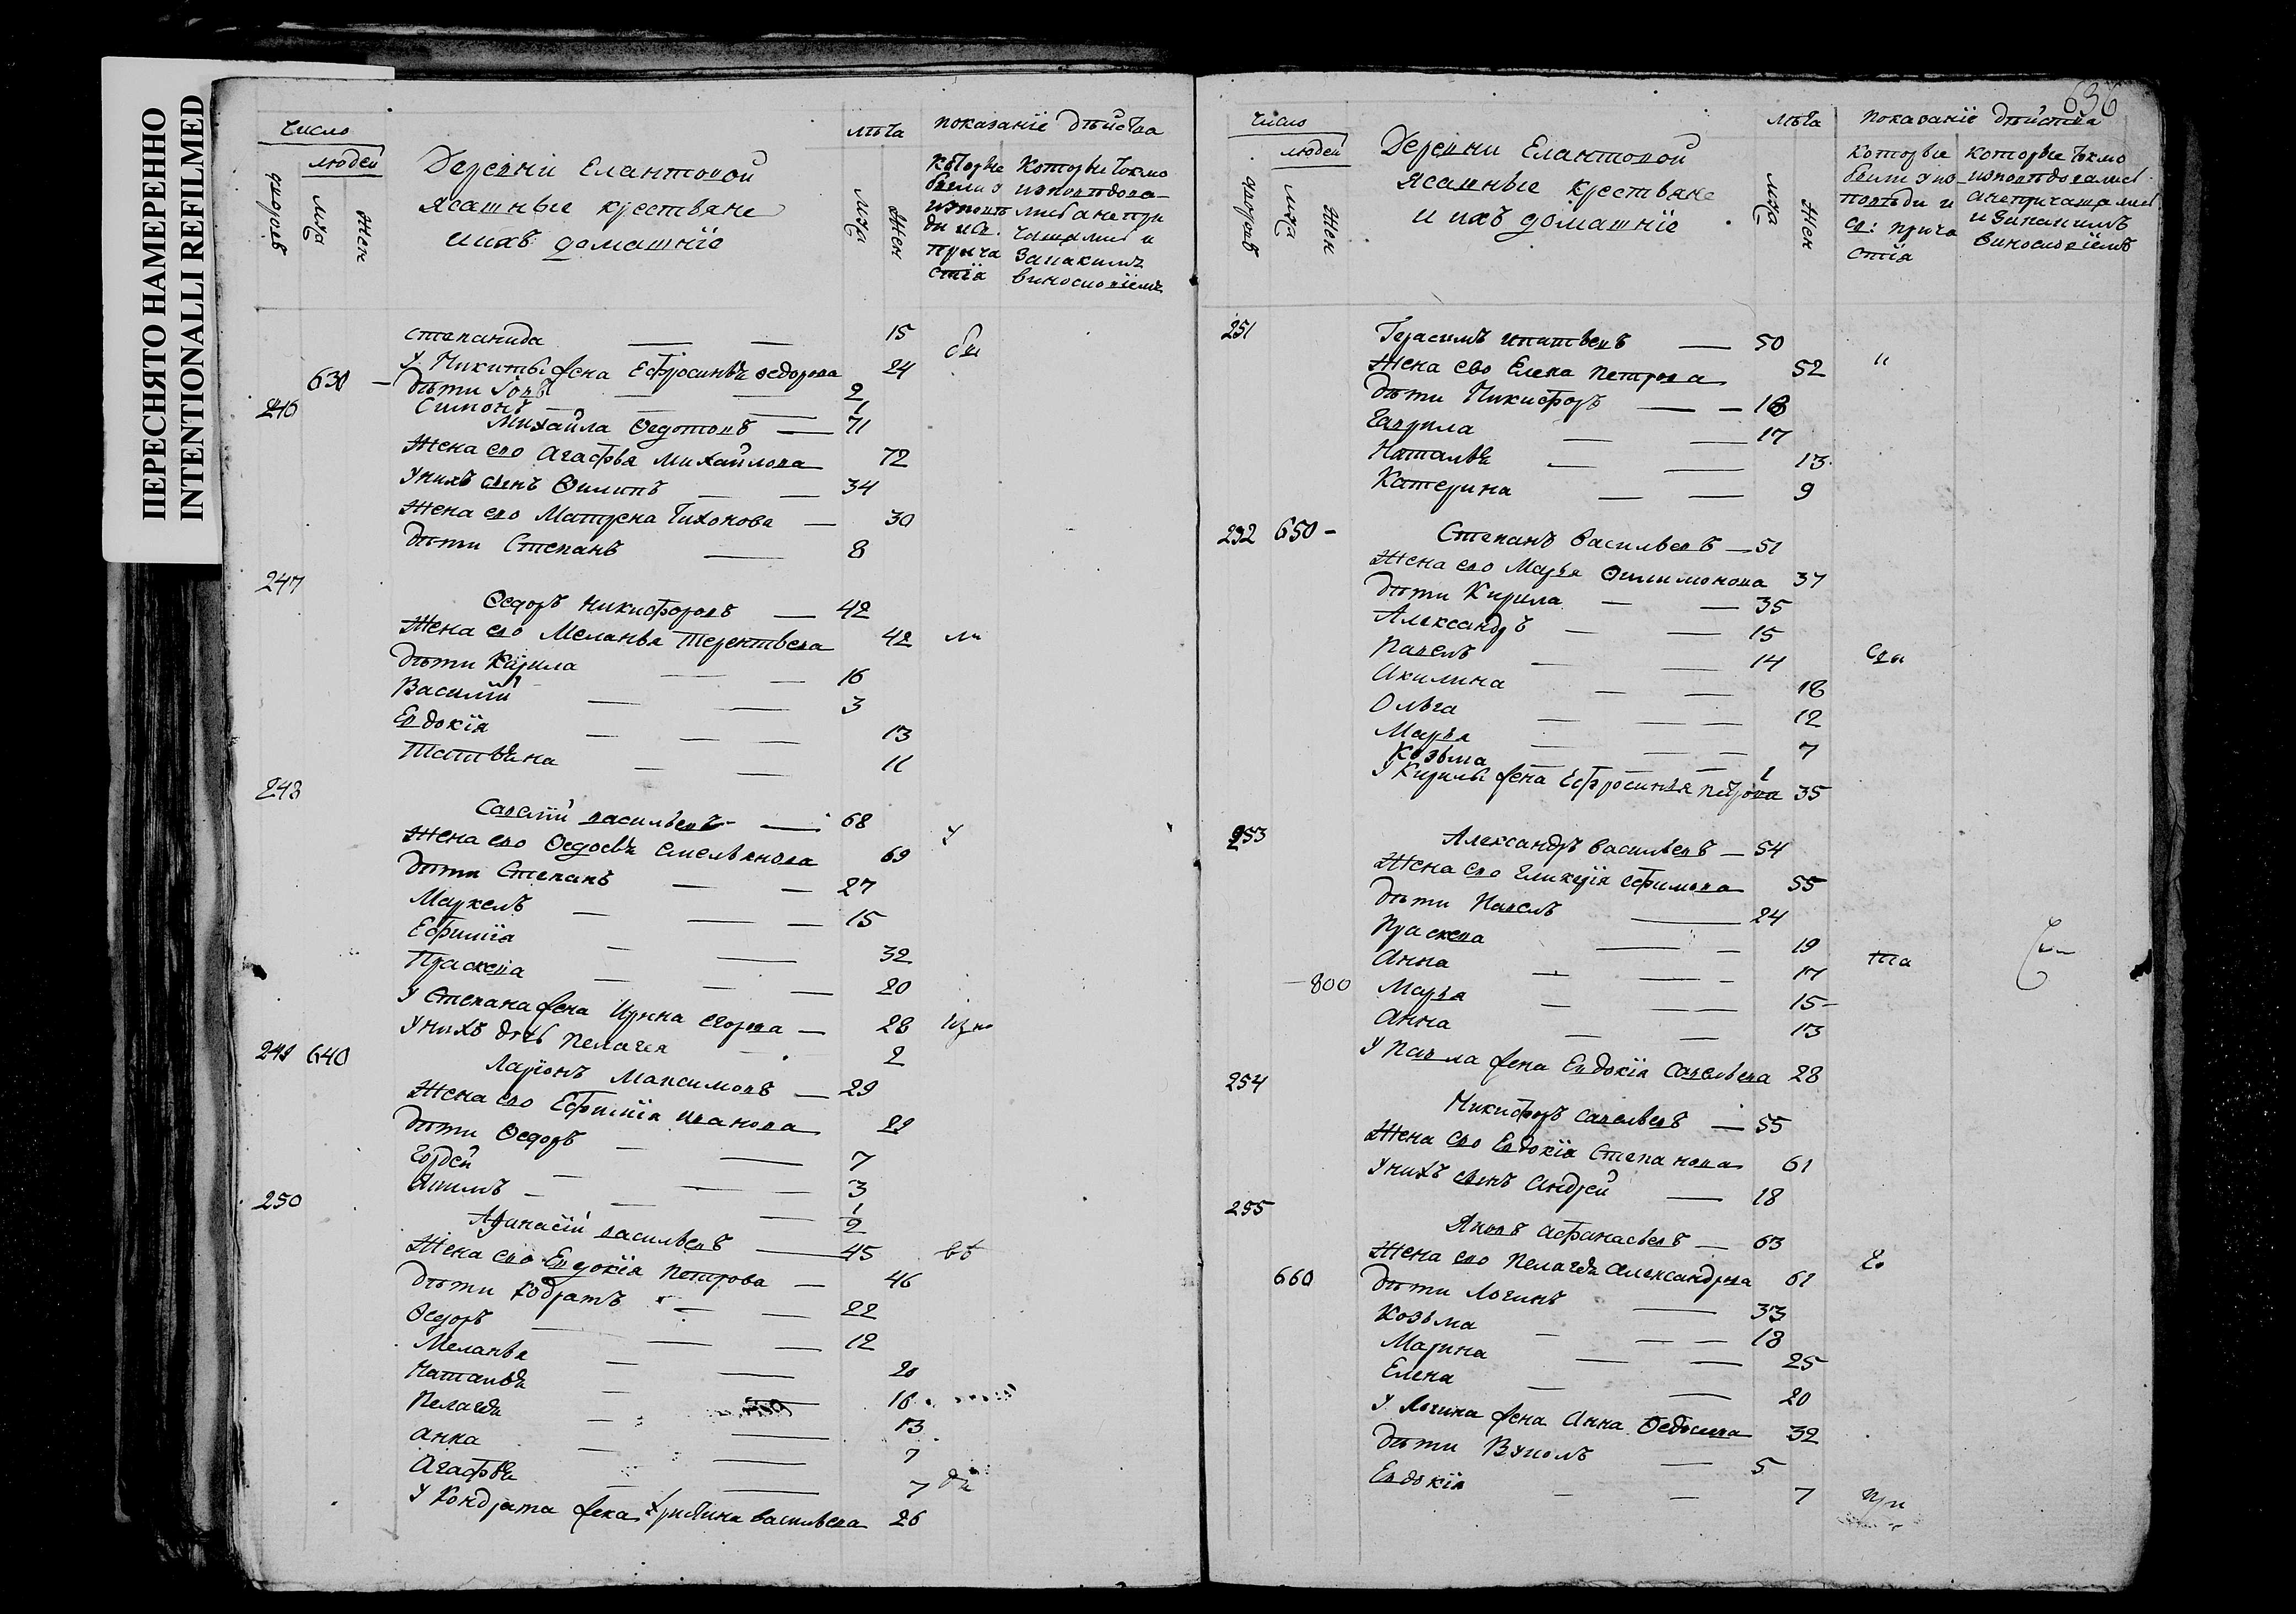 ПЕРЕСНЯТО НАМЕРЕННО
INTENTIONALLI REFILMED
Число
людей
дворовъ
муз
жен
Деревни Елантовой
ясашные крестьяне
и ихъ домашніе
лѣта
муз
жен
показаніе дѣйства
которые были у исповѣди и св. причастія
которые токмо исповѣдовались а не причащались и за какимъ винословіемъ
Степанида — — 15 бы
У Никиты жена Ефросинья Федорова 24
630 — дѣти Іовъ — — 2
Симонъ — — 1
246 Михайла Федотовъ — 71
Жена ево Агафья Михайлова 72
У нихъ сынъ Филипъ — — 34
Жена ево Матрена Тихонова — 30
Дѣти Степанъ — 8
247
Федоръ Никифоровъ — 42
Жена ево Меланья Терентьева 42 ли
Дѣти Кирила — — 16
Василій — — 3
Евдокія — — — 13
Татьяна — — 11
248
Савелій Васильевъ — 68
Жена ево Федосья Емельянова 69 у
Дѣти Степанъ — — 27
Маркелъ — — — 15
Ефимія — — 32
Праскева — — — 20
У Степана жена Ирина Егорова — 28 испо
У нихъ дочь Пелагея — 2
249 640 Ларіонъ Максимовъ — 29
Жена ево Ефимія Иванова 29
Дѣти Федоръ — — 7
Гордей — — — 3
Якимъ — — — 1/2
250
Афанасій Васильевъ — 45 вѣ
Жена ево Евдокія Петрова — 46
Дѣти Кодратъ — — 22
Федоръ — — — 12
Меланья — — 20
Наталья — — 16
Пелагея — — 13
Анна — — 7
Агафья — — 7 ди
У Кондрата жена Христина Васильева 26
636
Число
людей
дворовъ
муз
жен
Деревни Елантовой
ясашные крестьяне
и ихъ домашніе
лѣта
муз
жен
показаніе дѣйства
которые были у исповѣди и св: причастія
которые токмо исповѣдовались а не причащались и за какимъ винословіемъ
251 Герасимъ Ипатьевъ — 50
Жена ево Елена Петрова 52 и
Дѣти Никифоръ — — 18
Гаврила — — 17
Наталья — — 13
Катерина — — 9
252 650 — Степанъ Васильевъ — 51
Жена ево Марья Филимонова 37
Дѣти Кирила — — 35
Александръ — — 15
Павелъ — — 14 свя
Акилина — — 18
Ольга — — — 12
Марья — — — 7
Козьма — — — 1
У Кирилы жена Ефросинья Петрова 35
253 Александръ Васильевъ — 54
Жена ево Гликерія Ефимова 55
Дѣти Павелъ — 24
Праскева — — 19
Анна — — — 17 та
800 Марья — — — 15 —
Анна — — 13
У Павла жена Евдокія Савельева 28
254
Никифоръ Савельевъ — 55
Жена ево Евдокія Степанова 61
У нихъ сынъ Андрей — 18
255
Яковъ Афанасьевъ — 63
Жена ево Пелагея Александрова 61 го
660 Дѣти Логинъ — 33
Козьма — — — 18
Марина — — 25
Елена — — 20
У Логина жена Анна Федосеева 32
Дѣти Вуколъ — 5
Евдокія — — 7 при